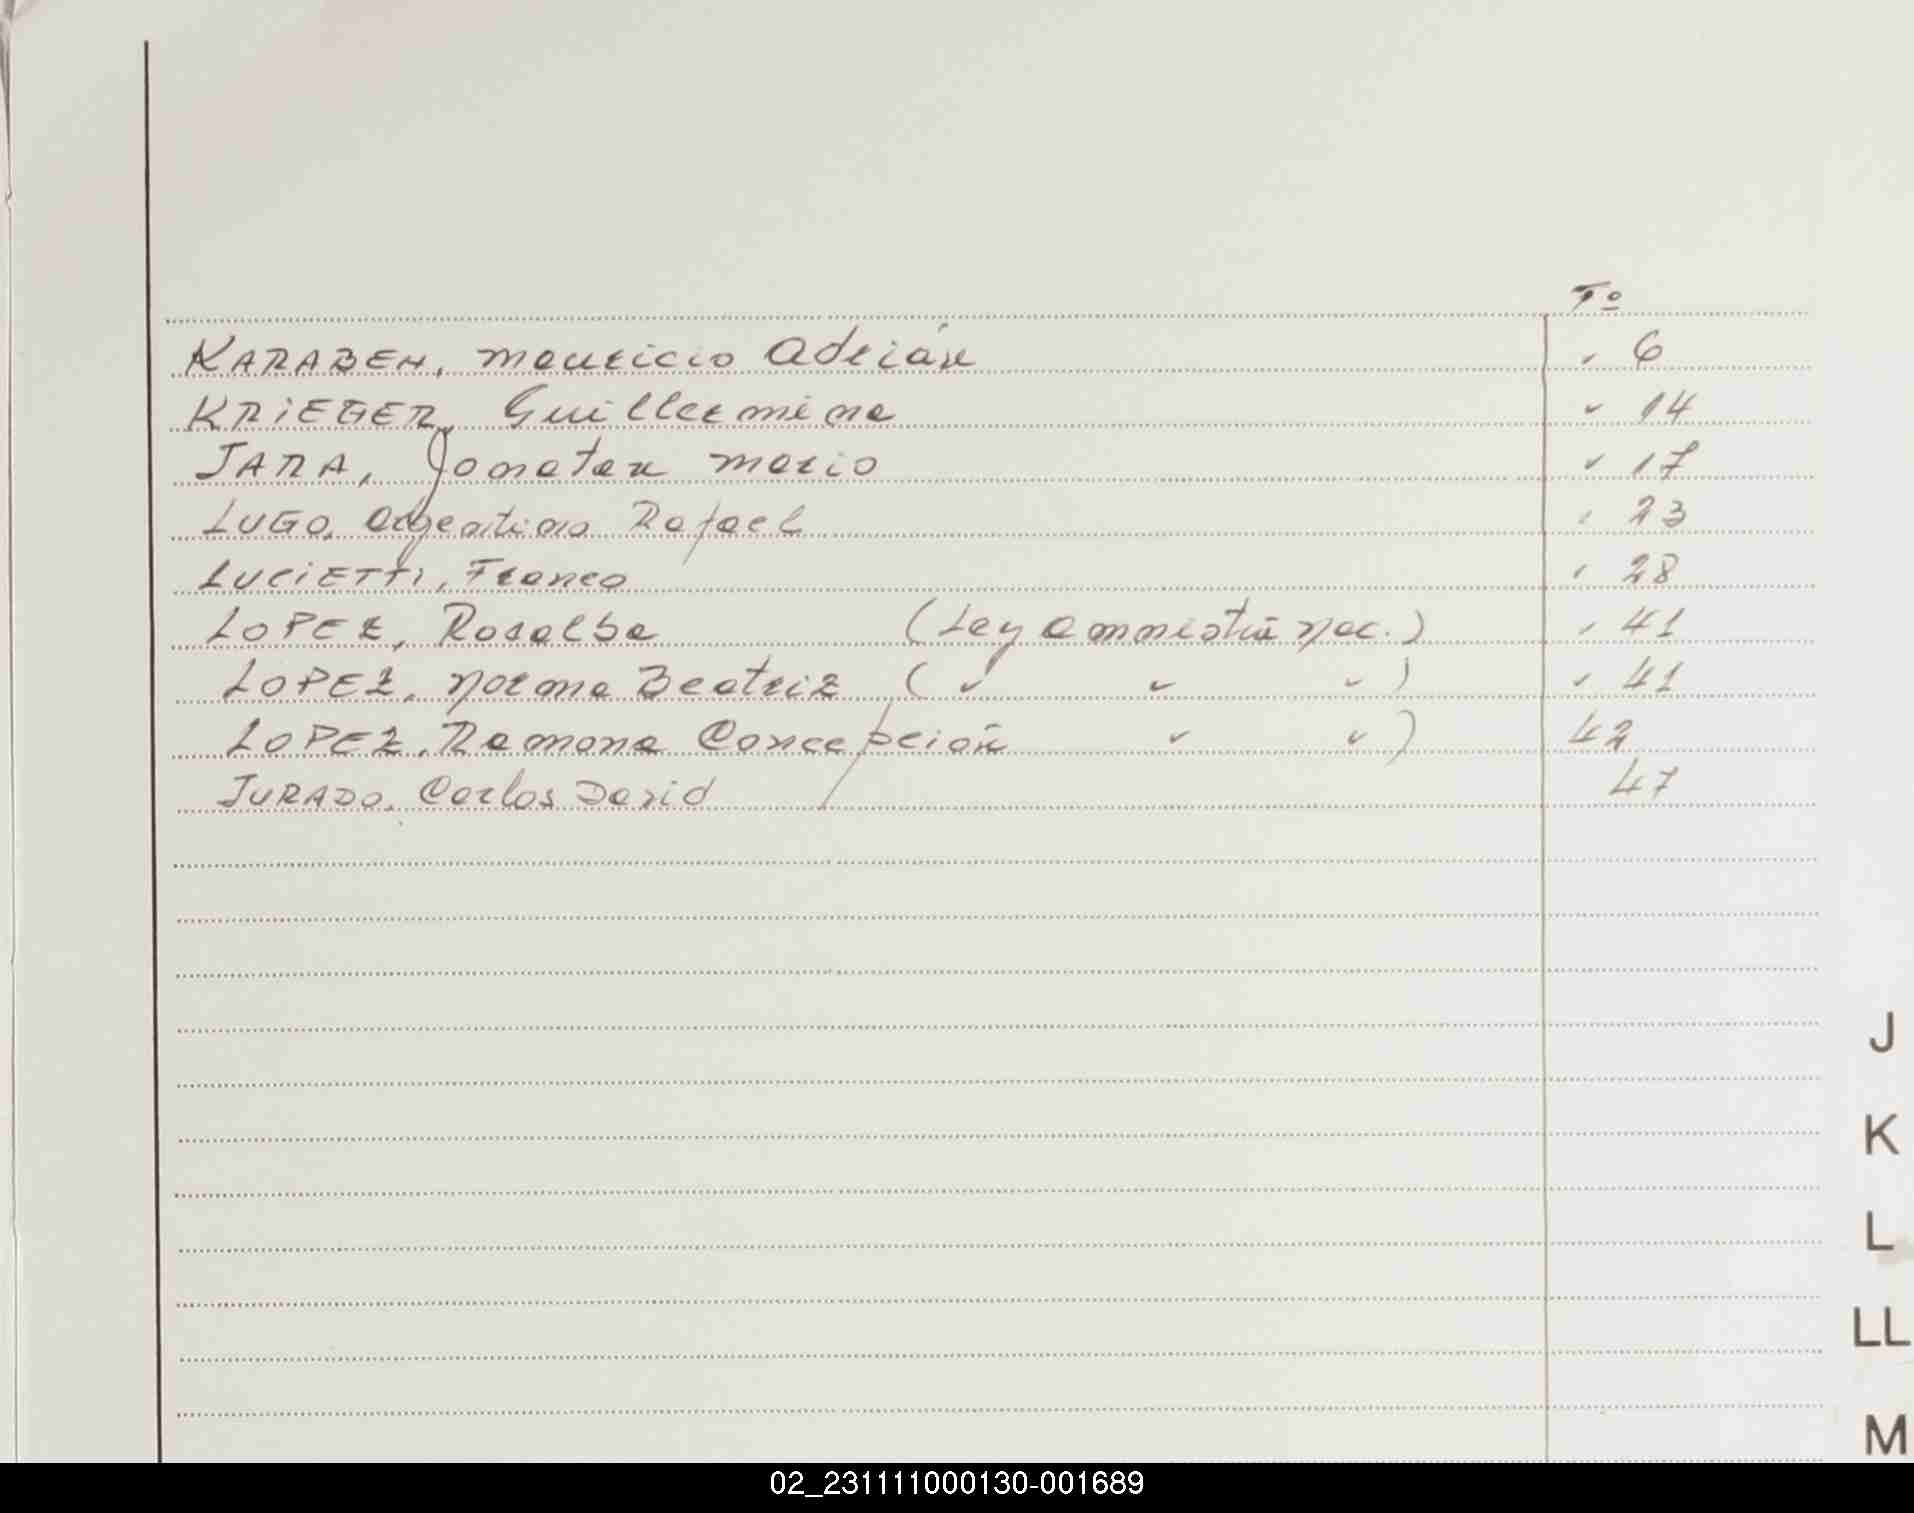 Fº
KARABEN, Mauricio Adrián 〃 6
KRIEGER, Guillermina 〃 14
JARA, Jonatan Mario 〃 17
LUGO, Argentino Rafael 〃 23
LUCIETTI, Franco 〃 28
LOPEZ, Rosalba (Ley amnistía nac.) 〃 41
LOPEZ, Norma Beatriz (〃 〃 〃) 〃 41
LOPEZ, Ramona Concepción 〃 〃) 42
JURADO, Carlos David 47
J
K
L
LL
M
02_231111000130-001689